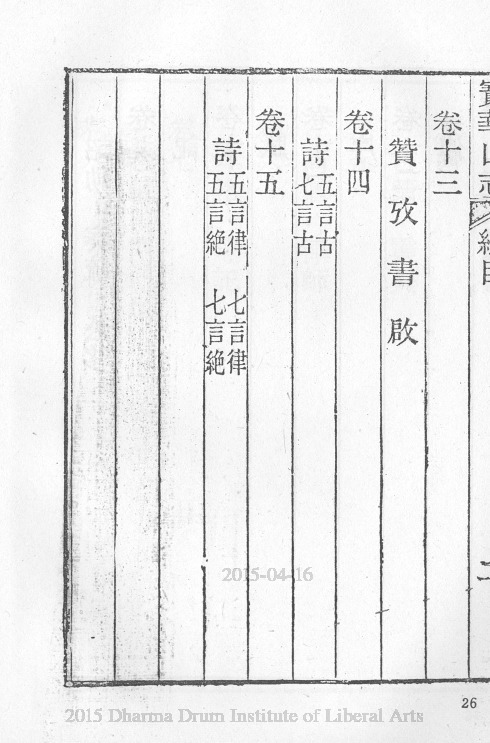 寶華山志 總目
卷十三
贊 攷 書 啟
卷十四
詩 五言古 七言古
卷十五
詩 五言律 七言律 五言絕 七言絕
2015-04-16
26
2015 Dharma Drum Institute of Liberal Arts